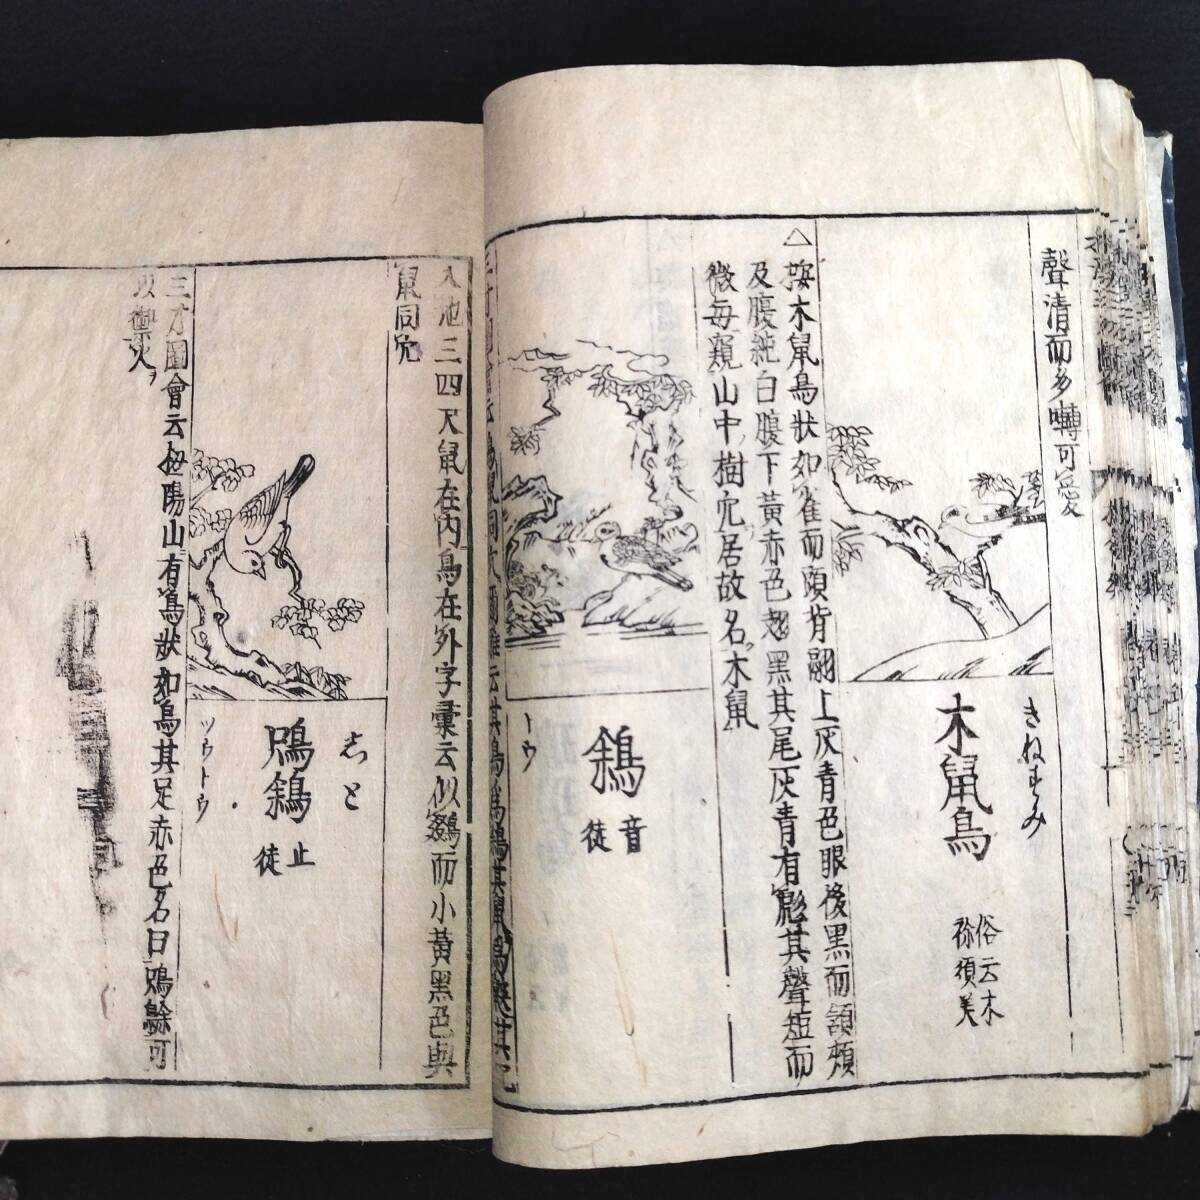 聲清而多囀可愛
きねずみ
木鼠鳥
俗云木
祢須美
△按木鼠鳥狀如雀而頭背翮上灰青色眼後黑而頷頰
及腹純白腹下黃赤色翅黑其尾灰青有彪其聲短而
微每窺山中樹穴居故名木鼠
鵌
音
徒
トウ
入地三四尺鼠在內鳥在外字彙云似鵽而小黃黑色與
鼠同穴
しと
鴟鵌
止
徒
ツウトウ
三才圖會云丑陽山有鳥狀如烏其足赤色名曰鴟鵌可
以禦火